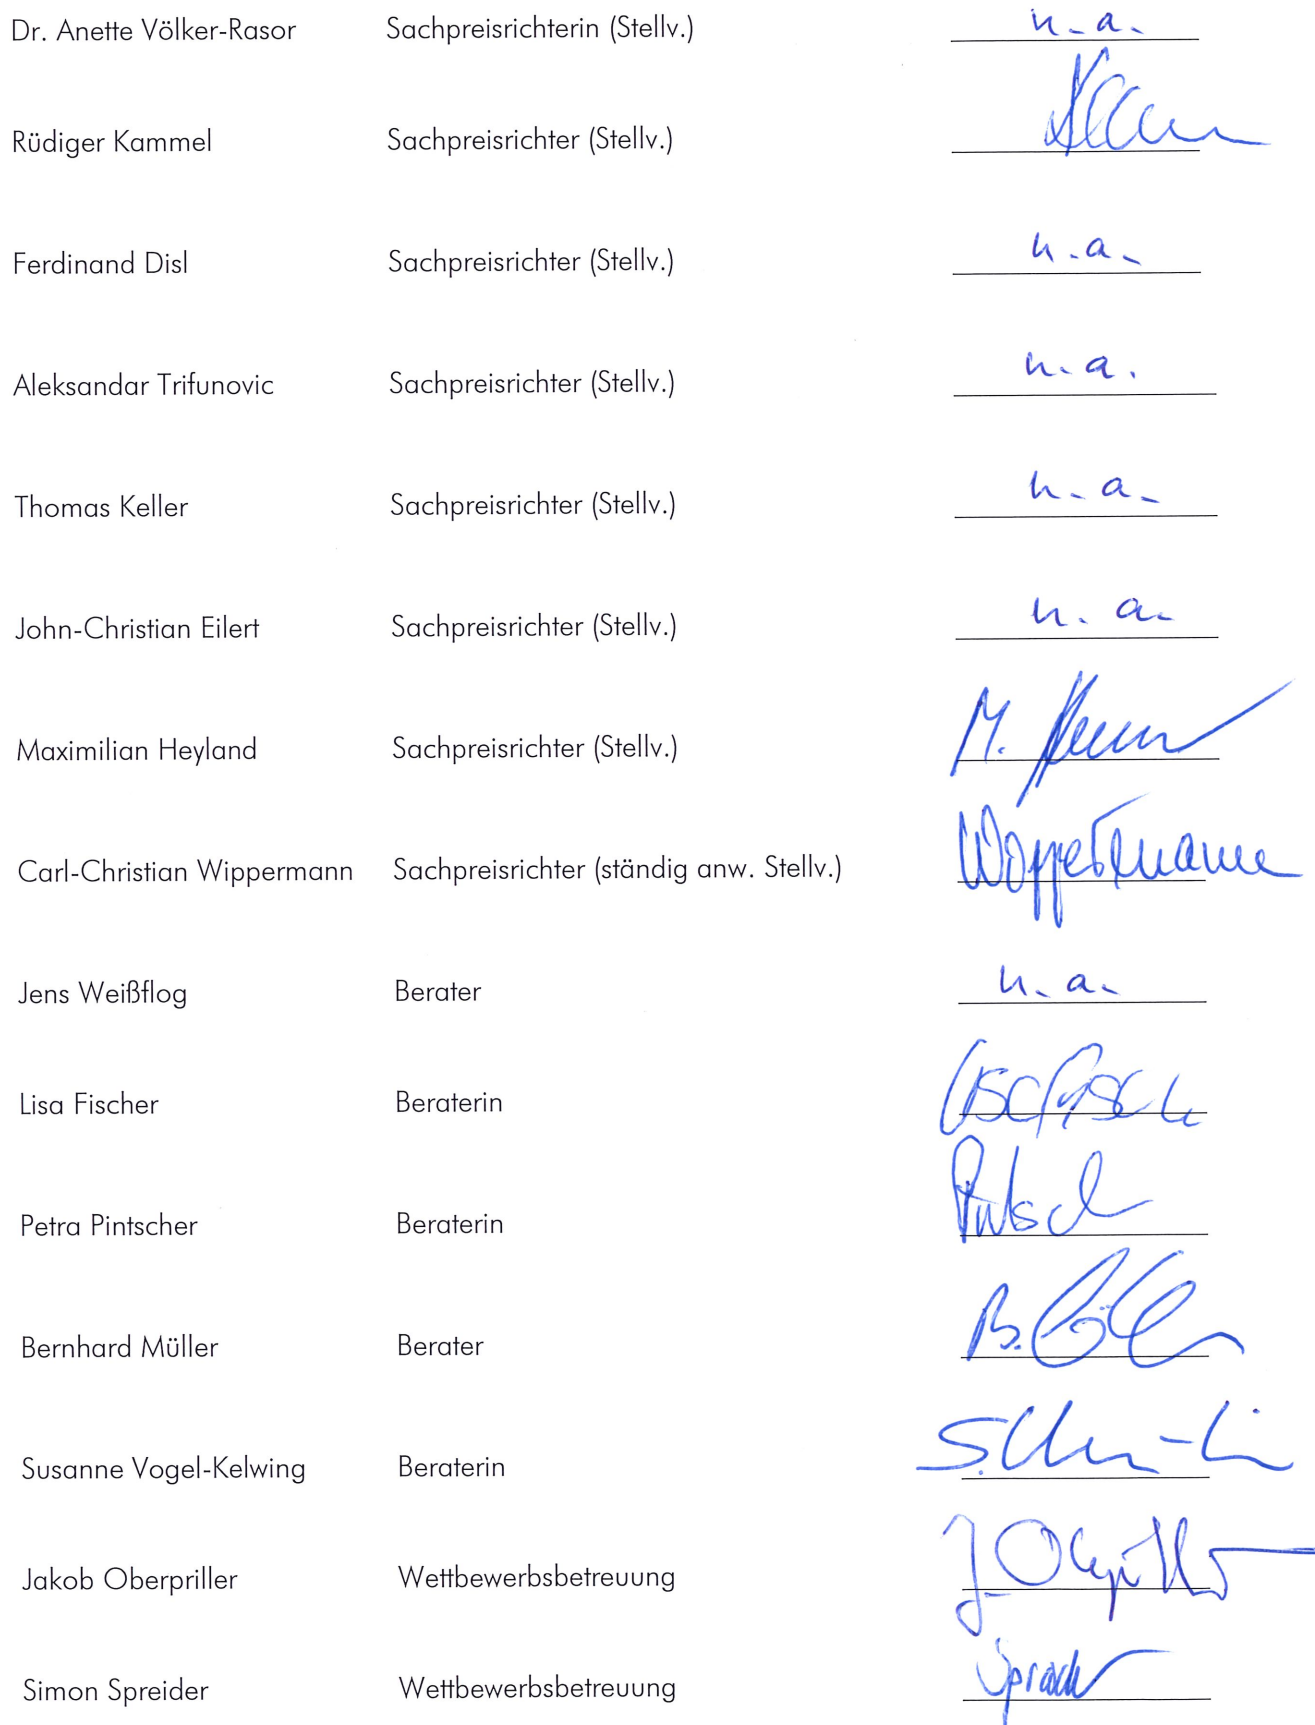 Dr. Anette Völker-Rasor Sachpreisrichterin (Stellv.) n.a.
Rüdiger Kammel Sachpreisrichter (Stellv.)
Ferdinand Disl Sachpreisrichter (Stellv.) n.a.
Aleksandar Trifunovic Sachpreisrichter (Stellv.) n.a.
Thomas Keller Sachpreisrichter (Stellv.) n.a.
John-Christian Eilert Sachpreisrichter (Stellv.) n.a.
Maximilian Heyland Sachpreisrichter (Stellv.) M.
Carl-Christian Wippermann Sachpreisrichter (ständig anw. Stellv.)
Jens Weißflog Berater n.a.
Lisa Fischer Beraterin
Petra Pintscher Beraterin
Bernhard Müller Berater B.
Susanne Vogel-Kelwing Beraterin S.
Jakob Oberpriller Wettbewerbsbetreuung J.
Simon Spreider Wettbewerbsbetreuung